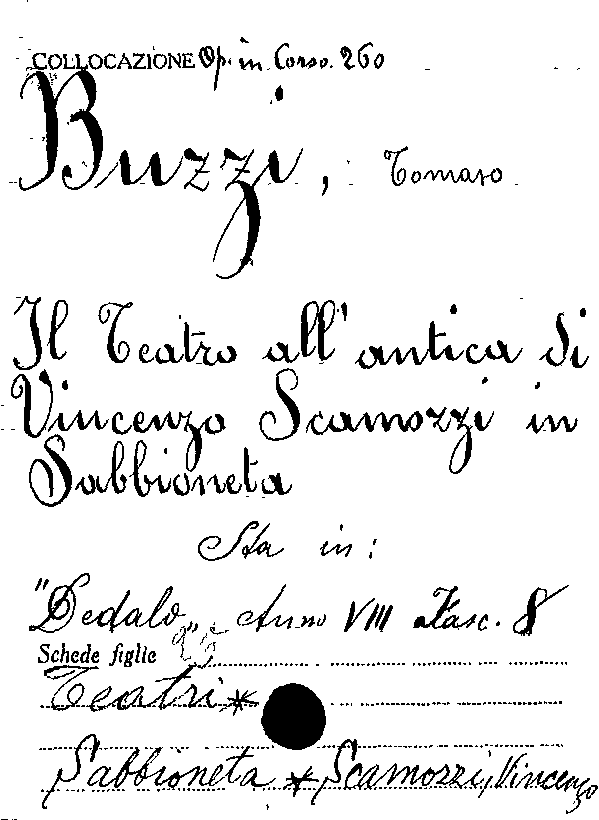 COLLOCAZIONE Op. in Corso. 260
Buzzi, Tomaso
Il Teatro all'antica di
Vincenzo Scamozzi in
Sabbioneta
Sta in:
"Dedalo" Anno VIII Fasc. 8
Schede figlie
Teatri *
Sabbioneta * Scamozzi, Vincenzo